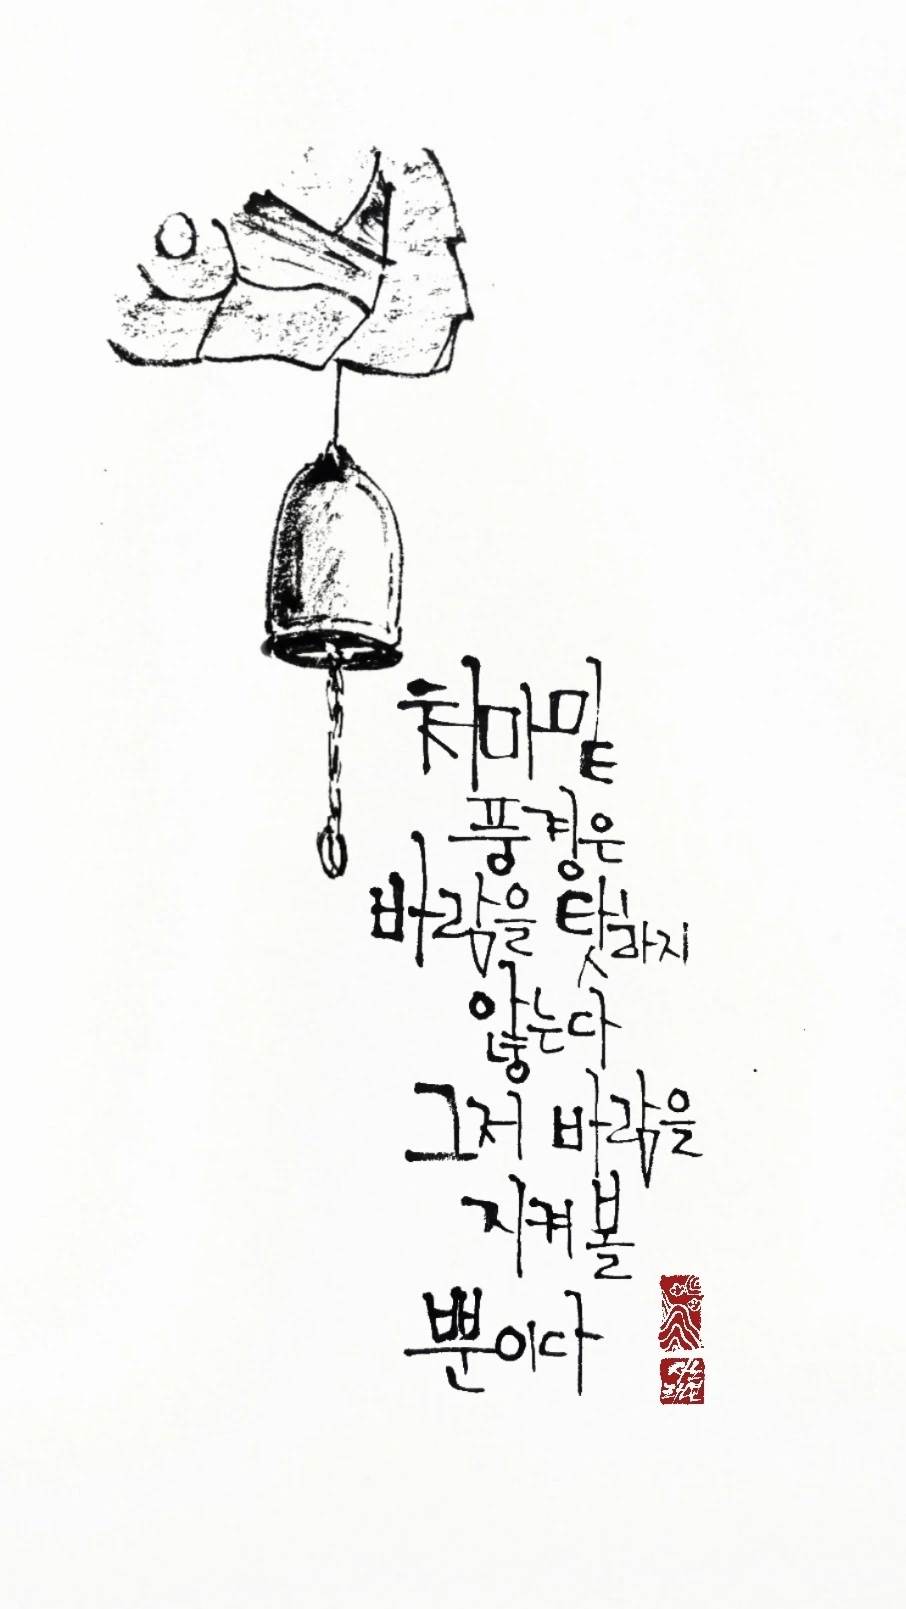 처마밑
풍경은
바람을 탓하지
않는다
그저 바람을
지켜 볼
뿐이다